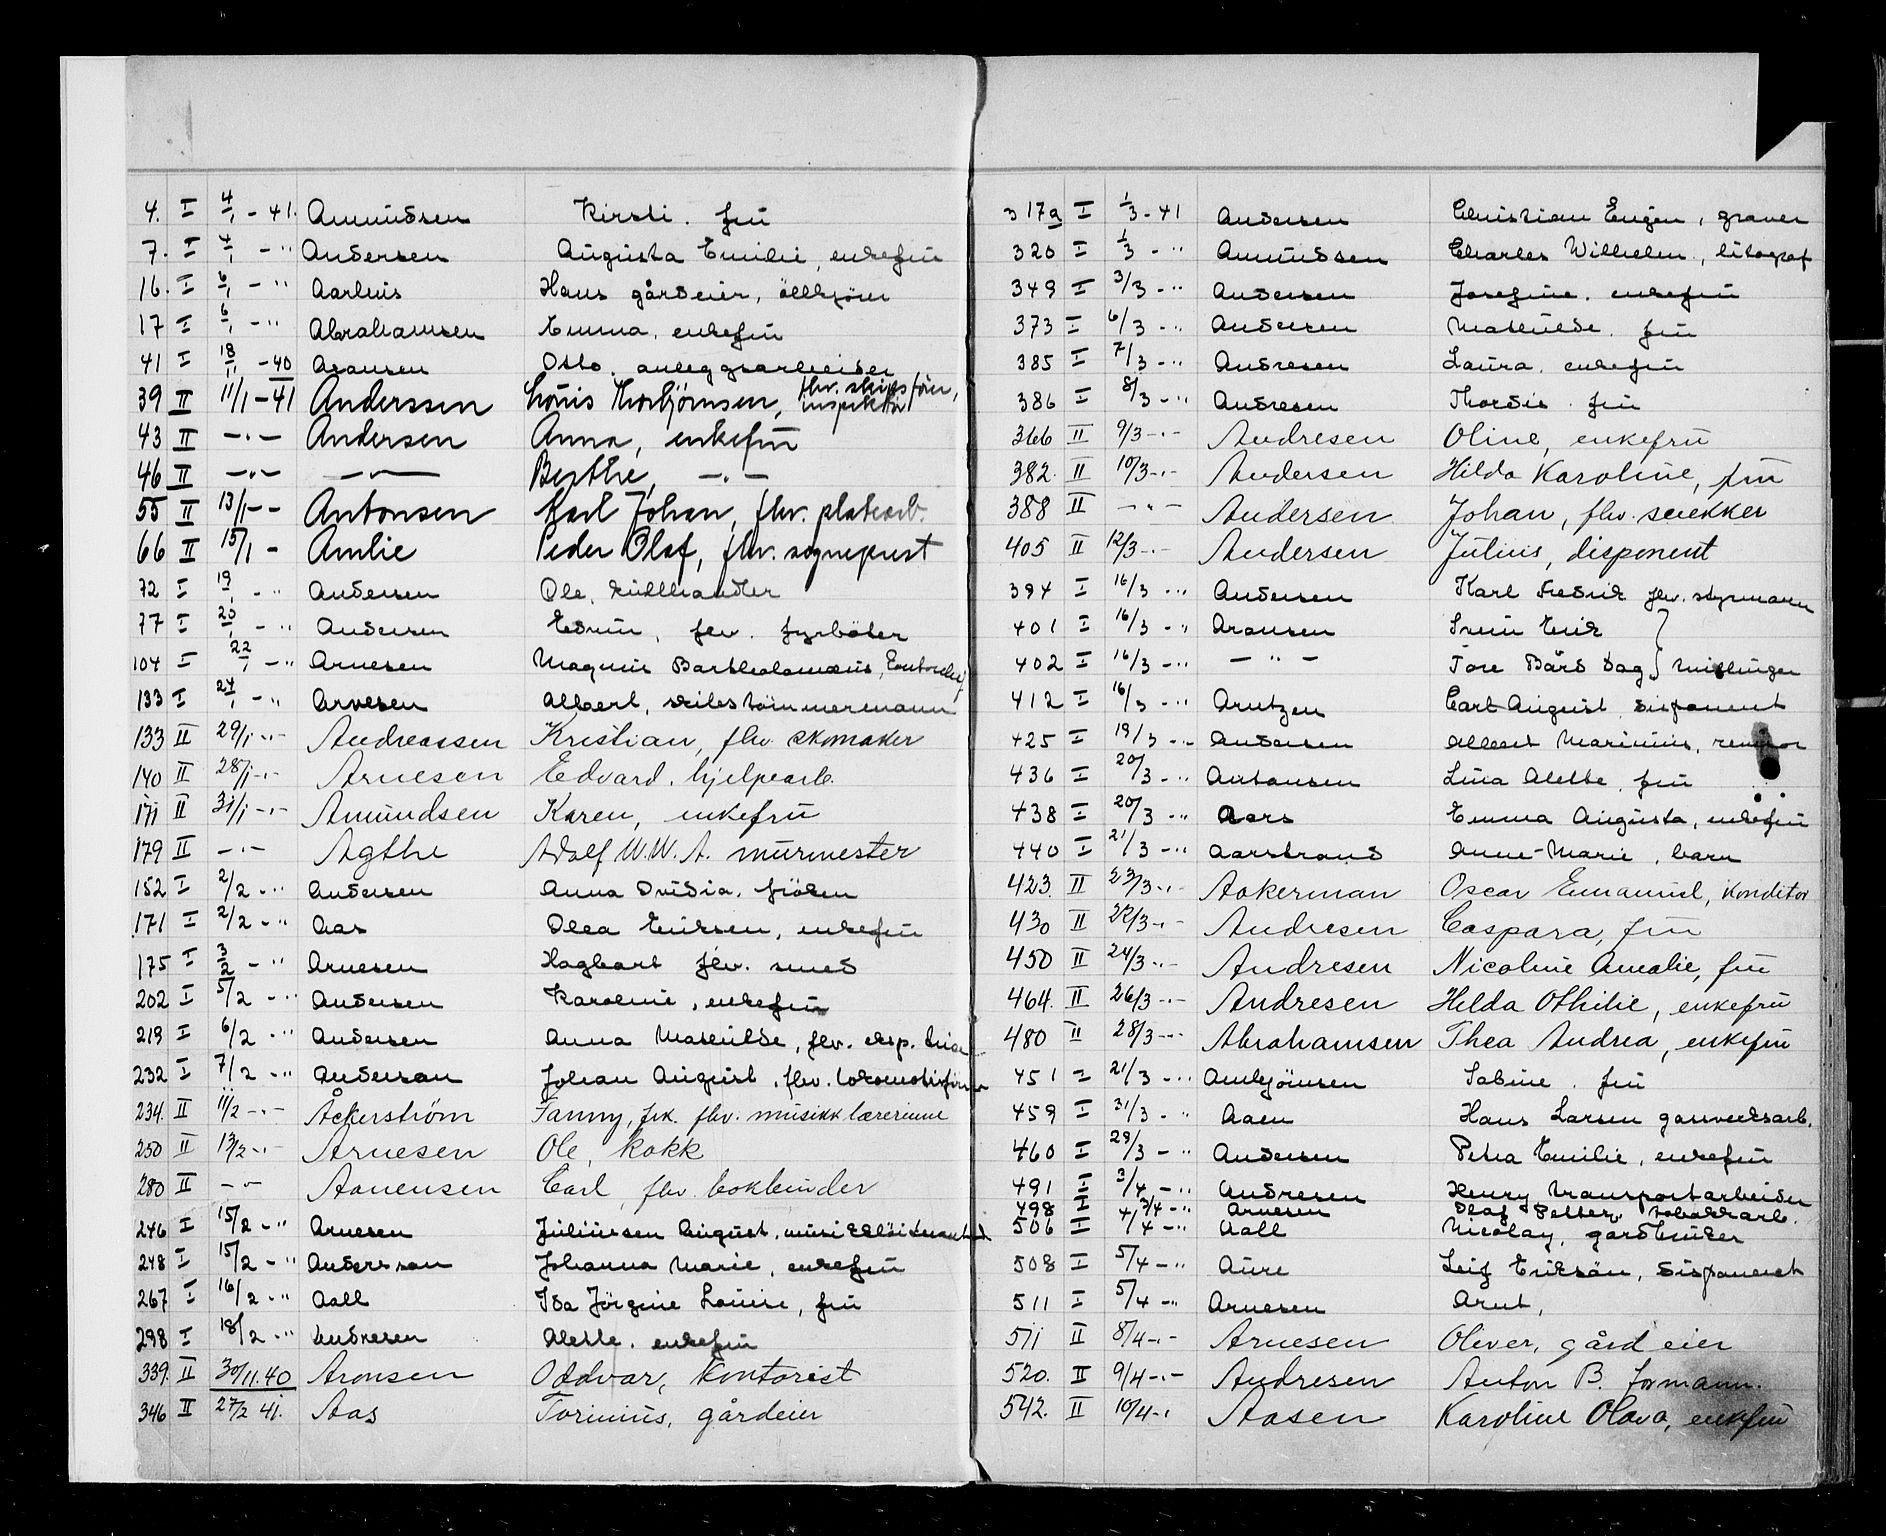 4. I 4/1 - 41. Amundsen Kirsti. frü
7. I 4/1 - " Andersen Augusta Emilie, enkefrü
16. I 6/1 - " Aarhuis Hans gårdeier,
17 I 6/1 - " Abrahamsen Emma, enkefrü
41 I 18/11 - 40 Aronsen Otto, anleggsarbeider
39 II 11/1 - 41 Anderssen Louis Thorbjørnsen, fhv. skipsfører, inspektør
43 II - " - Andersen Anna, enkefrü
46 II - " - - " - Berthe, - " -
55 II 13/1 - - Antonsen Karl Johan, fhv. platearb.
66 II 15/1 - Amlie Peder Olaf, fhv. sogneprest
72 I 19/1 - " Andersen Ole, kullhandler
77 I 20/1 - " Andersen Edvin, fhv. fyrbøter
104 I 22/1 - " Arnesen Magnus Bartholomæus, kontorchef
133 I 24/1 - " Arvesen Albert, skibstømmermann
133 II 29/1 - " - Andreassen Kristian, fhv. skomaker
140 II 28/1 - " - Arnesen Edvard, hjelpearb.
171 II 31/1 - " - Amundsen Karen, enkefrü
179 II - " - Agthe Adolf W.W.A. mürmester
152 I 2/2 - " Andersen Anna Ovidia, frøken
171 I 2/2 - " Aas Olea Eriksen, enkefrü
175 I 3/2 - " Arnesen Hagbart fhv. smed
202 I 5/2 - " Andersen Karoline, enkefrü
219 I 6/2 - " Andersen Anna Mathilde, fhv. eksp.
232 I 7/2 - " Anderson Johan August, fhv. lokomotivfører
234. II 11/2 - " - Åckerström Fanny, frk. fhv. musikklærerinne
250 II 13/2 - " - Arnesen Ole, kokk
280 II - " - Aanensen Carl, fhv. bokbinder
246 I 15/2 - " Arnesen Juliüsen August,
248 I 15/2 - " Andersson Johanna Marie, enkefrü
267 I 16/2 - " Aall Ida Jørgine Louise, frü
298 I 18/2 - " Andresen Alette, enkefrü
339. II 30/11.40 Aronsen Oddvar, kontorist
346 II 27/2 41. Aas Torinius, gårdeier
317a I 1/3 - 41 Andersen Christian Eugen, graver
320 I 1/3 - " Amundsen Charles Wilhelm, litograf
349 I 3/3 - " Andersen Josefine, enkefrü
373 I 6/3 - " Andersen Mathilde, frü
385 I 7/3 - " Andresen Laura, enkefrü
386 I 8/3 - " Andresen Thordis, frü
366 II 9/3 - " - Andresen Oline, enkefrü
382. II 10/3 - " - Andersen Hilda Karoline, frü
388 II - " - Andersen Johan, fhv. snekker
405 II 12/3 - " - Andersen Julius, disponent
394 I 16/3 - " Andersen Karl Fredrik fhv. styrmann
401 I 16/3 - " Aronsen Svein Erik }
402 I 16/3 - " - " - Tore Bård Dag } tvillinger
412 I 16/3 - " Arntzen Carl August, disponent
425 I 19/3 - " Andersen Albert Marinius, revisor
436 I 20/3 - " Antonsen Lina Alette, frü
438 I 20/3 - " Aars Emma Augusta, enkefrü
440 I 21/3 - " Aarstrand Anne-Marie, barn
423. II 23/3 - " - Aakerman Oscar Emanuel, konditor
430 II 22/3 - " - Andresen Caspara, frü
450 II 24/3 - " - Andresen Nicoline Amalie, frü
464. II 26/3 - " - Andresen Hilda Othilie, enkefrü
480 II 28/3 - " - Abrahamsen Thea Andrea, enkefrü
451 I 21/3 - " Ambjörnsen Sabine, frü
459 I 31/3 - " Aaen Hans Larsen gassverksarb.
460 I 29/3 - " Andersen Petra Emilie, enkefrü
491 I 3/4 - " Andresen Henry transportarbeider
498 I 3/4 - " Arnesen Olaf Petter, tobakkarb.
506 I 4/4 - " Aall Nicolay, gardbruker
508 I 5/4 - " Aure Leif Eriksön, disponent
511 I 5/4 - " Arnesen Arnt,
511 II 8/4 - " - Arnesen Oliver, gårdeier
520. II 9/4 - " - Andresen Anton B. formann.
542. II 10/4 - " Aasen Karoline Olava, enkefrü